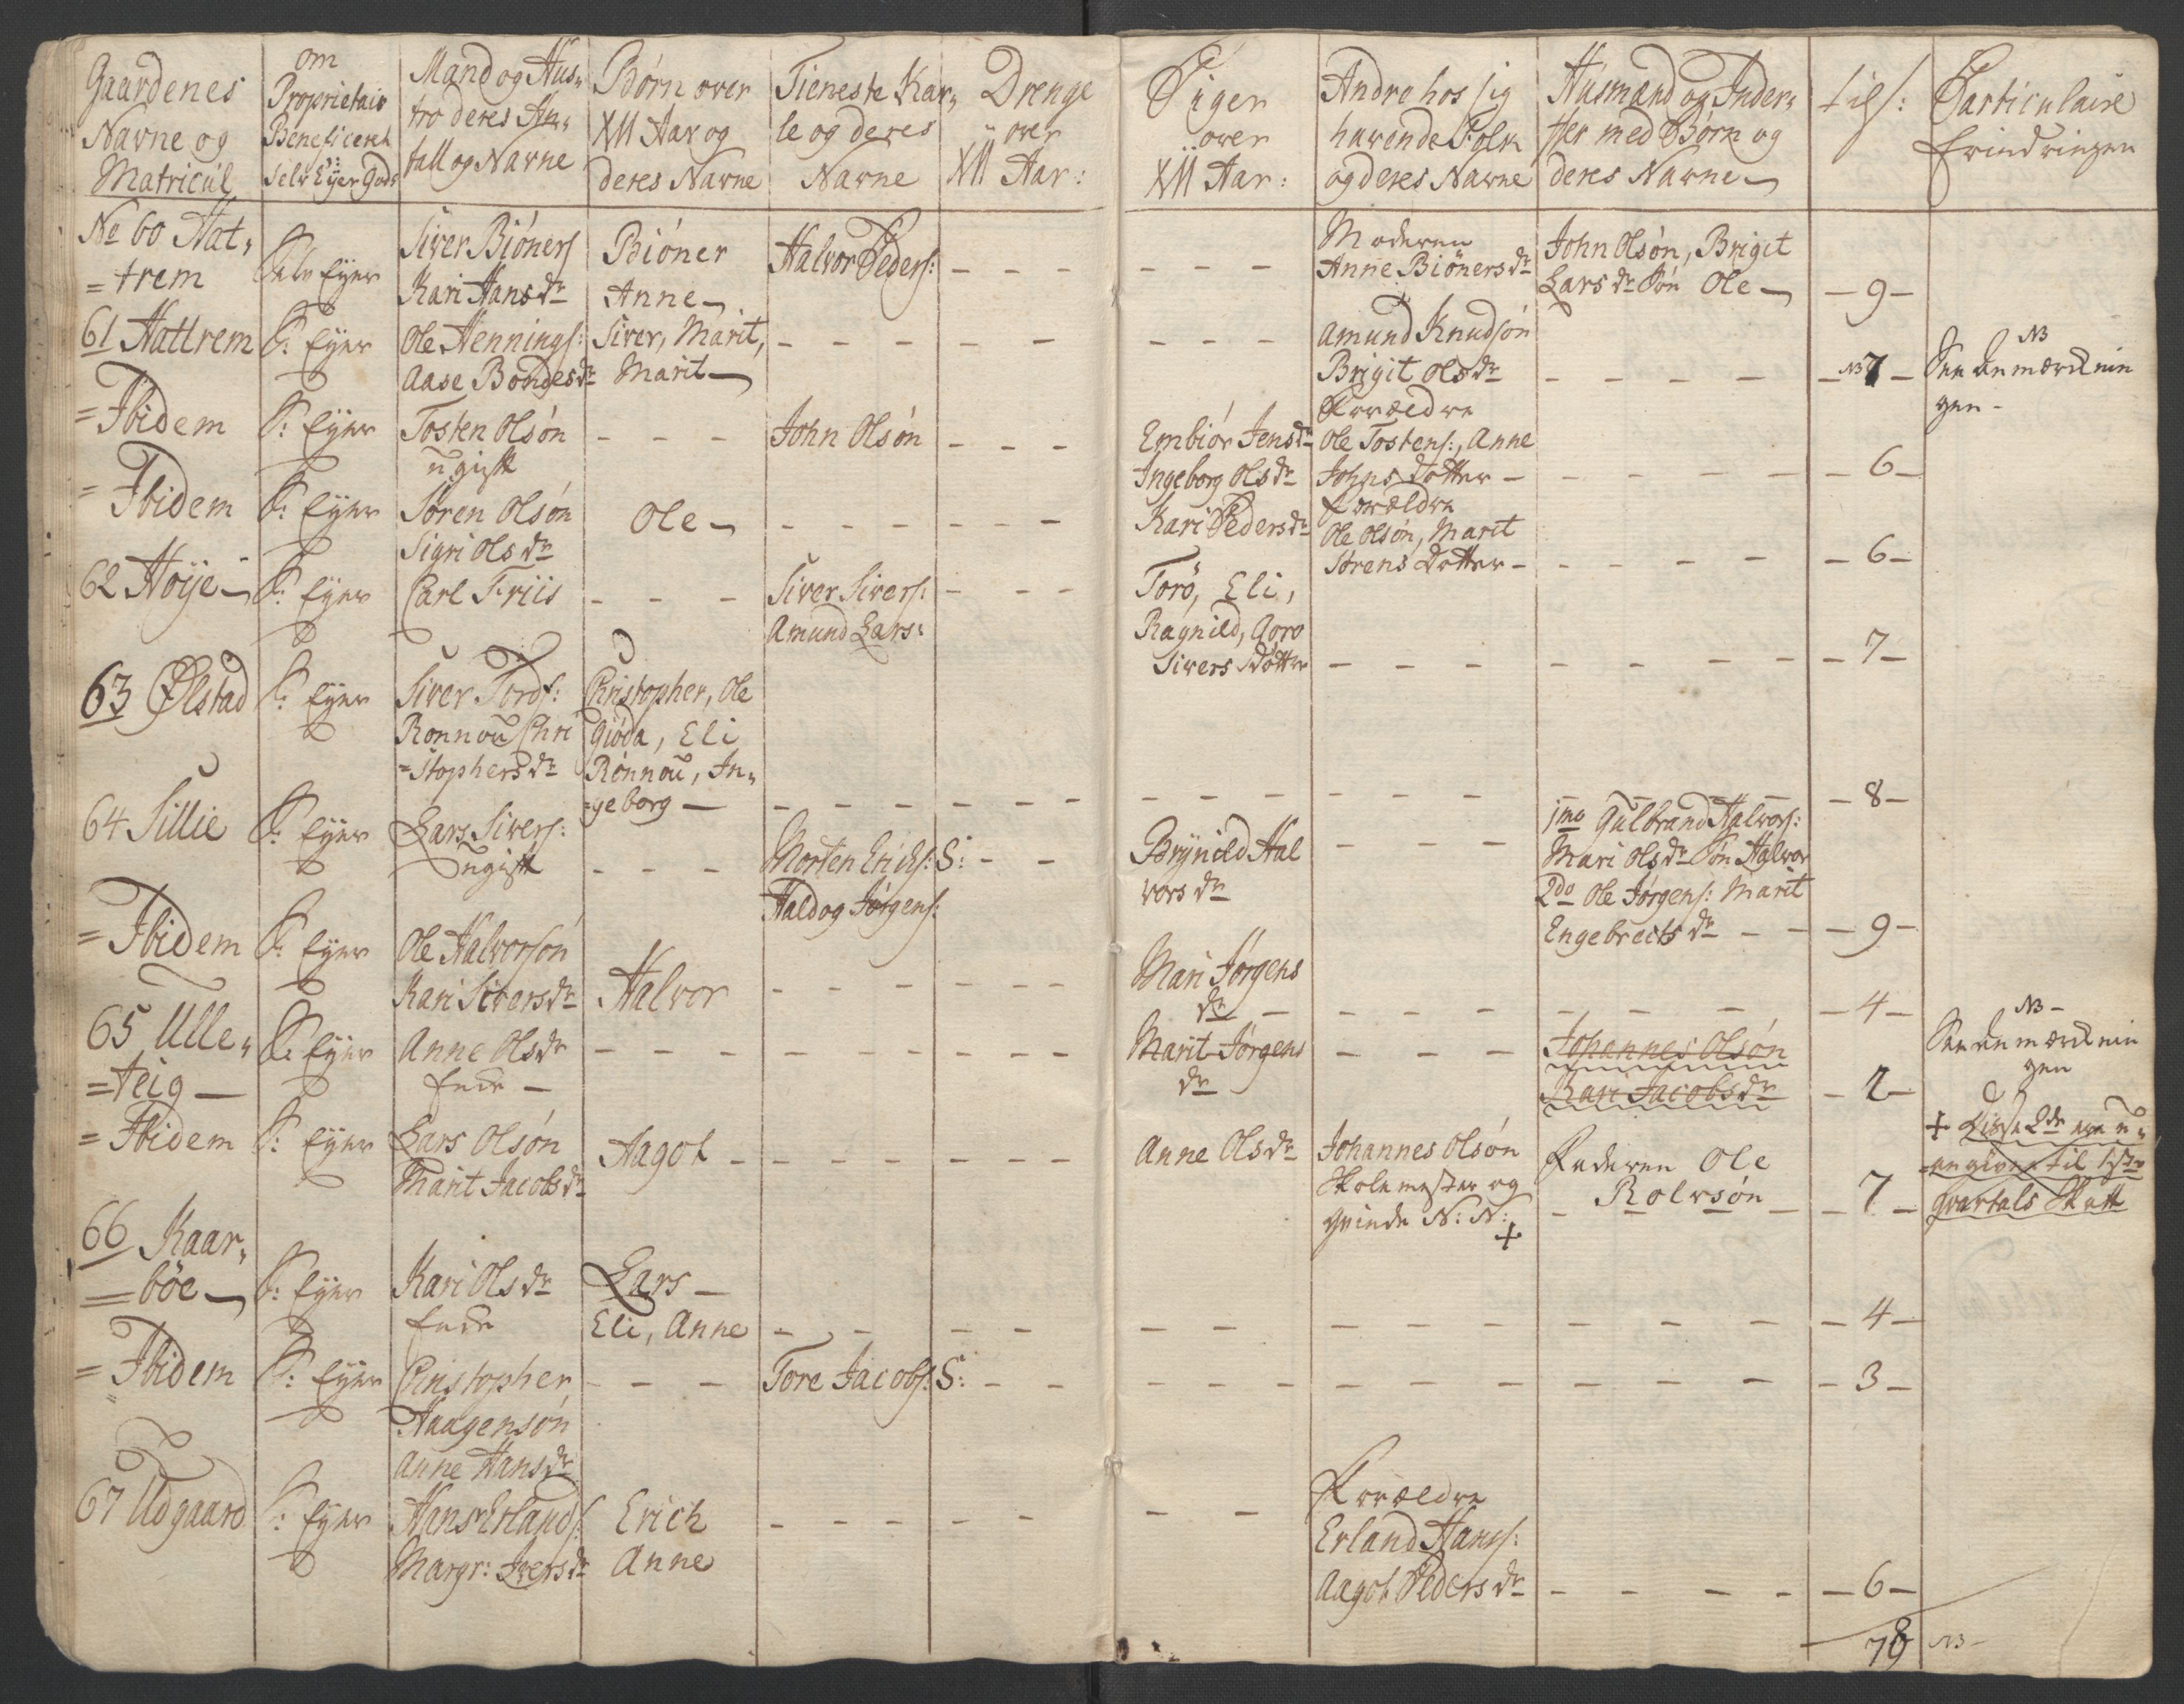 Gaardenes
Navne og
Matricul
om
Proprietair
Beneficeret
Selv Eÿer Gods
Mand og Hus„
tro deres An„
tall og Navne
Børn over
XII Aar og
deres Navne
Tieneste Kar„
le og deres
Navne
Drenge
over
XII Aar:
Piger
over
XII Aar:
Andre hos sig
havende Folk
og deres Navne
Husmænd og Inder„
ster med Børn og
deres Navne
tils:
Particulaire
Erindringer
No 60 Hat„
=trem
Selv Eÿer
Siver Biøners
Kari Hansdr
Biöner
Anne
Halvor Peders: - - -
- - -
Moderen
Anne Biönersdr
John Olsøn, Brigit
Larsdr Søn Ole
- 9 -
61 Hattrem
S: Eÿer
Ole Hennings:
Aase Bondesdr
Siver, Marit,
Marit
- - - - -
- - -
Amund Knudsøn
Brigit Olsdr
- - - -
NB 7 -
NB
See Anmærcknin
gen -
= Ibidem
S: Eÿer
Tosten Olsøn
ugift
- - -
John Olsøn - - -
Embiór Jensdr
Ingeborg Olsdr
Forældre
Ole Tostens:, Anne
Johns Dotter -
- - - -
- 6 -
= Ibidem
S: Eÿer
Søren Olsøn
Sigri Olsdr
Ole
- - - - - - -
Kari Pedersdr
Forældre
Ole Olsøn, Marit
Sørens Dotter -
- - - -
- 6 -
62 Høÿe
S: Eÿer
Carl Friis
- - -
Siver Sivers:
Amund Lars:
- - -
Torö, Eli,
Ragnild, Goro
Sivers Dotter
- - - - - - -
- 7 -
63 Ølstad
S: Eÿer
Siver Tords:
Ronnou Chri
=stophersdr
Christopher, Ole
Giöda, Eli
Rönnou, In„
=geborg
- - - - - - -
- - - - -
- 8 -
64 Sillie
S: Eÿer
Lars Sivers:
ugift
- - -
Morten Erichs: S: - -
Haldog Jørgens:
Brÿnild Hal
vorsdr
- - -
1mo Gulbrand Halvors:
Mari Olsdr Søn Halvor
2do Ole Jørgens: Marit
Engebreitsdr - -
- 9 -
= Ibidem
S: Eÿer
Ole Halvorsön
Kari Siversdr
Halvor
- - - - - -
Mari Jørgens
dr -
- - - - - -
- 4 -
65 Ulle„
=teig
S: Eÿer
Anne Olsdr
Encke -
- - - - - - - - -
Marit Jørgens
dr
- - -
Johannes Olsøn
Kari Jacobsdr
- 2 -
NB -
See Anmærcknin
gen
= Ibidem
S: Eÿer
Lars Olsøn
Marit Jacobsdr
Aagot
- - - - - - -
Anne Olsdr
Johannes Olsøn
Skolemester og
Qvinde N: N: +
Faderen Ole
Rolvsøn
- 7 -
+ Disse 2de ere u„
=angivne til 1ste
Qvartals Skatt
66 Kaar„
=böe
S: Eÿer
Kari Olsdr
Encke
Lars
Eli, Anne
- - - -
- - - - - - - -
- 4 -
= Ibidem
S: Eÿer
Christopher
Haagensön
Anne Hansdr
- - -
Tore Jacobs: S: - -
- - - - - - - - -
- 3 -
67 Udgaard
S: Eÿer
Hans Erlands:
Margr: Iversdr
Erich
Anne
- - - - -
- -
Forældre
Erland Hans:
Aagot Pedersdr
- - - -
- 6 -
78 NB -